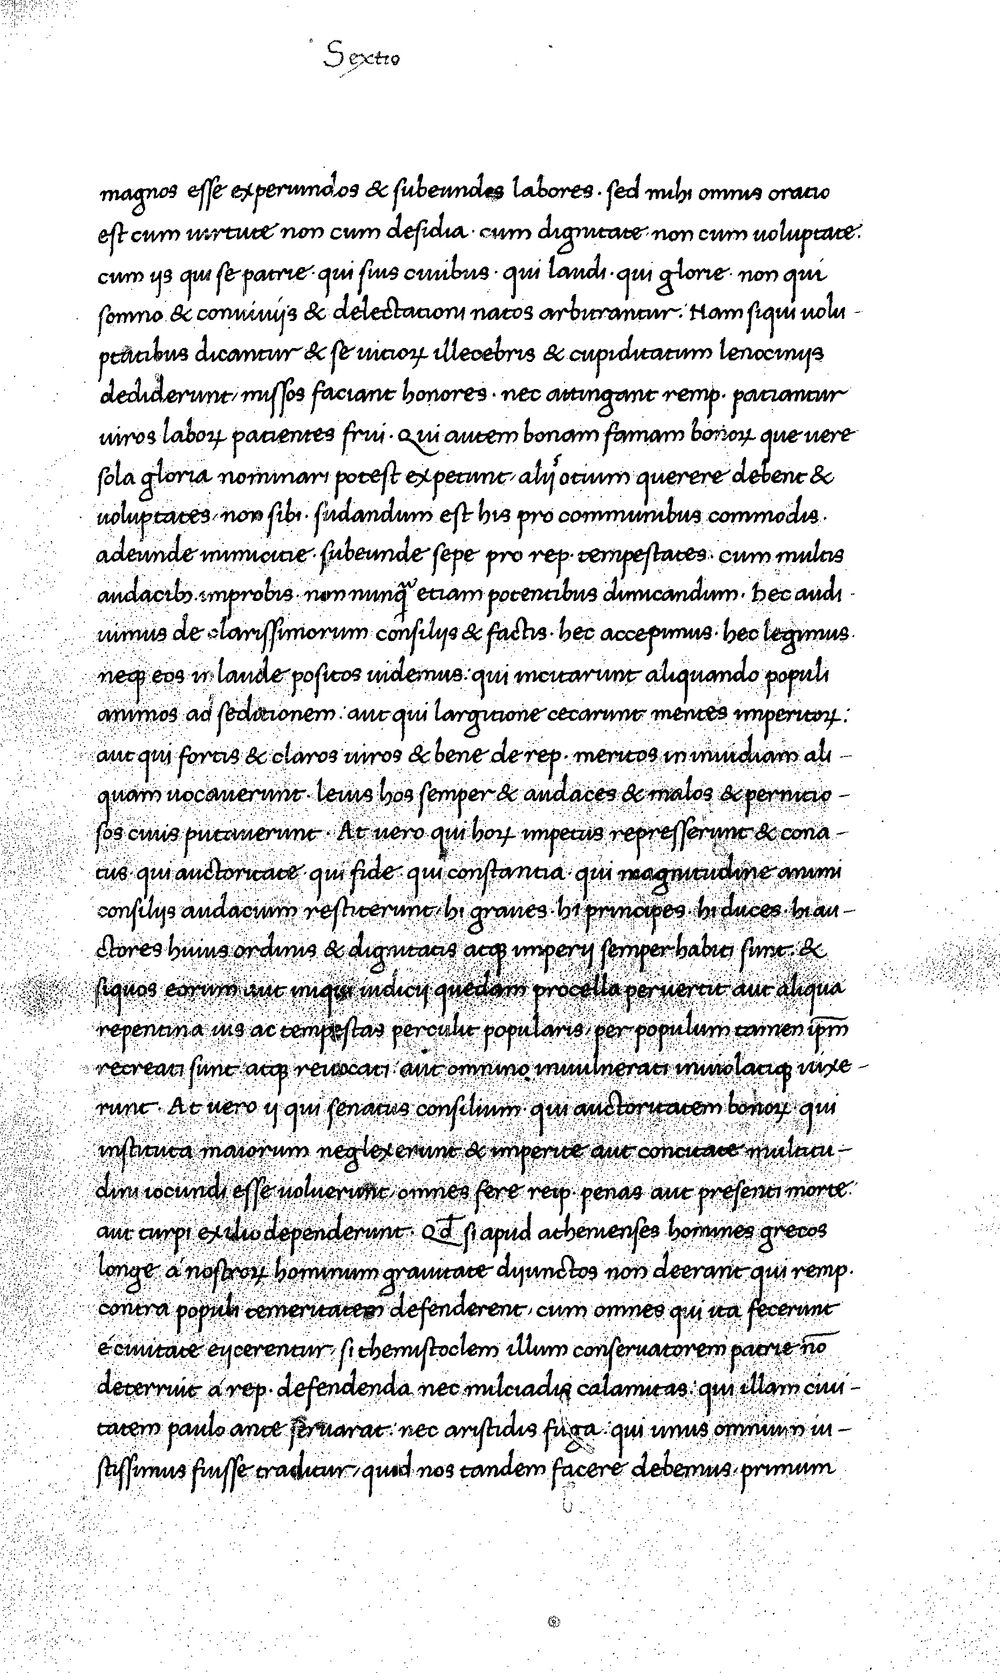 Sextio
magnos esse experiundos & subeundos labores · sed mihi omnis oratio
est cum uirtute non cum desidia · cum dignitate · non cum uoluptate ·
cum ijs qui se patrie · qui suis ciuibus · qui laudi · qui glorie · non qui
somno & conuiuijs & delectationi natos arbitrantur · Nam siqui uolu -
ptatibus dicantur & se uitioꝝ illecebris & cupiditatum lenocinijs
dediderunt, missos faciant honores · nec attingant remp · patiantur
uiros laboꝝ patientes frui · Qui autem bonam famam bonoꝝ que uere
sola gloria nominari potest expetunt, alij otium querere debent &
uoluptates, non sibi · sudandum est his pro communibus commodis ·
adeunde inimicitie · subeunde sepe pro rep · tempestates · cum multis
audacibꝫ improbis · non nunq̃ etiam potentibus dimicandum · hec audi -
uimus de clarissimorum consilijs & factis · hec accepimus · hec legimus ·
neqꝫ eos in laude positos uidemus : qui incitarunt aliquando populi
animos ad seditionem : aut qui largitione cecarunt mentes imperitoꝝ :
aut qui fortis & claros uiros & bene de rep · meritos in inuidiam ali -
quam uocauerunt · leuis hos semper & audaces & malos & pernitio -
sos ciuis putauerunt · At uero qui hoꝝ impetus represserunt & cona -
tus · qui auctoritate · qui fide · qui constantia · qui magnitudine animi
consilijs audacium restiterunt, hi graues · hi principes · hi duces · hi au -
ctores huius ordinis & dignitatis atqꝫ imperij semper habiti sunt · &
siquos eorum aut iniqui iudicij quedam procella peruertit aut aliqua
repentina uis ac tempestas perculit popularis, per populum tamen ip̅m
recreati sunt atqꝫ reuocati · aut omnino inuulnerati inuiolatiqꝫ uixe -
runt · At uero ij qui senatus consilium · qui auctoritatem bonoꝝ · qui
instituta maiorum neglexerunt & imperite aut concitate multitu -
dini iocundi esse uoluerunt, omnes fere reip · penas aut presenti morte ·
aut turpi exilio dependerunt · Qd̅ si apud athenienses homines grecos
longe á nostroꝝ hominum grauitate diiunctos non deerant qui remp ·
contra populi temeritatem defenderent, cum omnes qui ita fecerunt
é ciuitate eijcerentur, si themistoclem illum conseruatorem patrie no̅
deterruit á rep · defendenda nec milciadis calamitas : qui illam ciui -
tatem paulo ante seruarat : nec aristidis fuga · qui unus omnium iu -
stissimus fuisse traditur, quid nos tandem facere debemus, primum